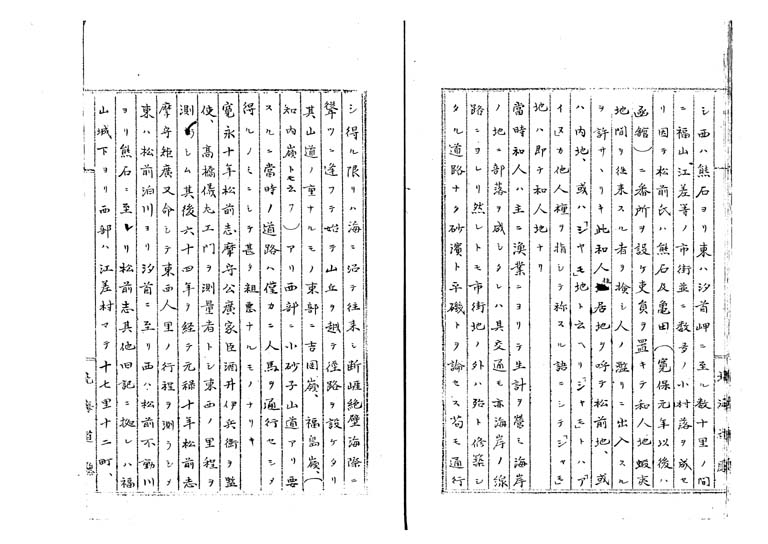 シ西ハ熊石ヨリ東ハ汐首岬ニ至ル数十里ノ間
ニ福山、江差等ノ市街並ニ数多ノ小村落ヲ成セ
リ因テ松前氏ハ熊石及亀田(寛保元年以後ハ
函館)ニ番所ヲ設ケ吏員ヲ置キテ和人地蝦夷
地間ヲ往来スル者ヲ検シ人ノ濫リニ出入スル
ヲ許サヽリキ此和人居地ヲ呼テ松前地、或
ハ内地、或ハ「シヤモ」地ト云ヘリ「シヤモ」トハ「ア
イヌ」カ他人種ヲ指シテ称スル語ニシテ「シヤモ」
地ハ即チ和人地ナリ
當時和人ハ主ニ漁業ニヨリテ生計ヲ營ミ海岸
ノ地ニ部落ヲ成シタレハ其交通モ亦海岸ノ線
路ニヨレリ然レトモ市街地ノ外ハ殆ト修築シ
タル道路ナク砂濱ト平磯トヲ論セス苟モ通行
シ得ル限リハ海ニ沿テ往来シ断崖絶壁海際ニ
聳ツニ逢フテ始テ山丘ヲ越テ徑路ヲ設ケタリ
其山道ノ重ナルモノ東部ニ吉岡嶺、福島嶺、(
知内嶺トモ云フ)アリ西部ニ小砂子山道アリ要
スルニ當時ノ道路ハ僅カニ人馬ヲ通行セシメ
得ルノミニシテ甚タ粗悪ナルモノナリキ
寛永十年松前志摩守公廣家臣酒井伊兵衛ヲ監
使、高橋儀左エ門ヲ測量者トシ東西ノ里程ヲ
測ラシム其後六十四年ヲ経テ元禄十年松前志
摩守矩廣又命シテ東西人里ノ行程ヲ測ラシヲ
東ハ松前泊川ヨリ汐首ニ至リ西ハ松前不動川
ヨリ熊石ニ至レリ松前志其他旧記ニ拠レハ福
山城下ヨリ西部ハ江差村マテ十七里十二町、